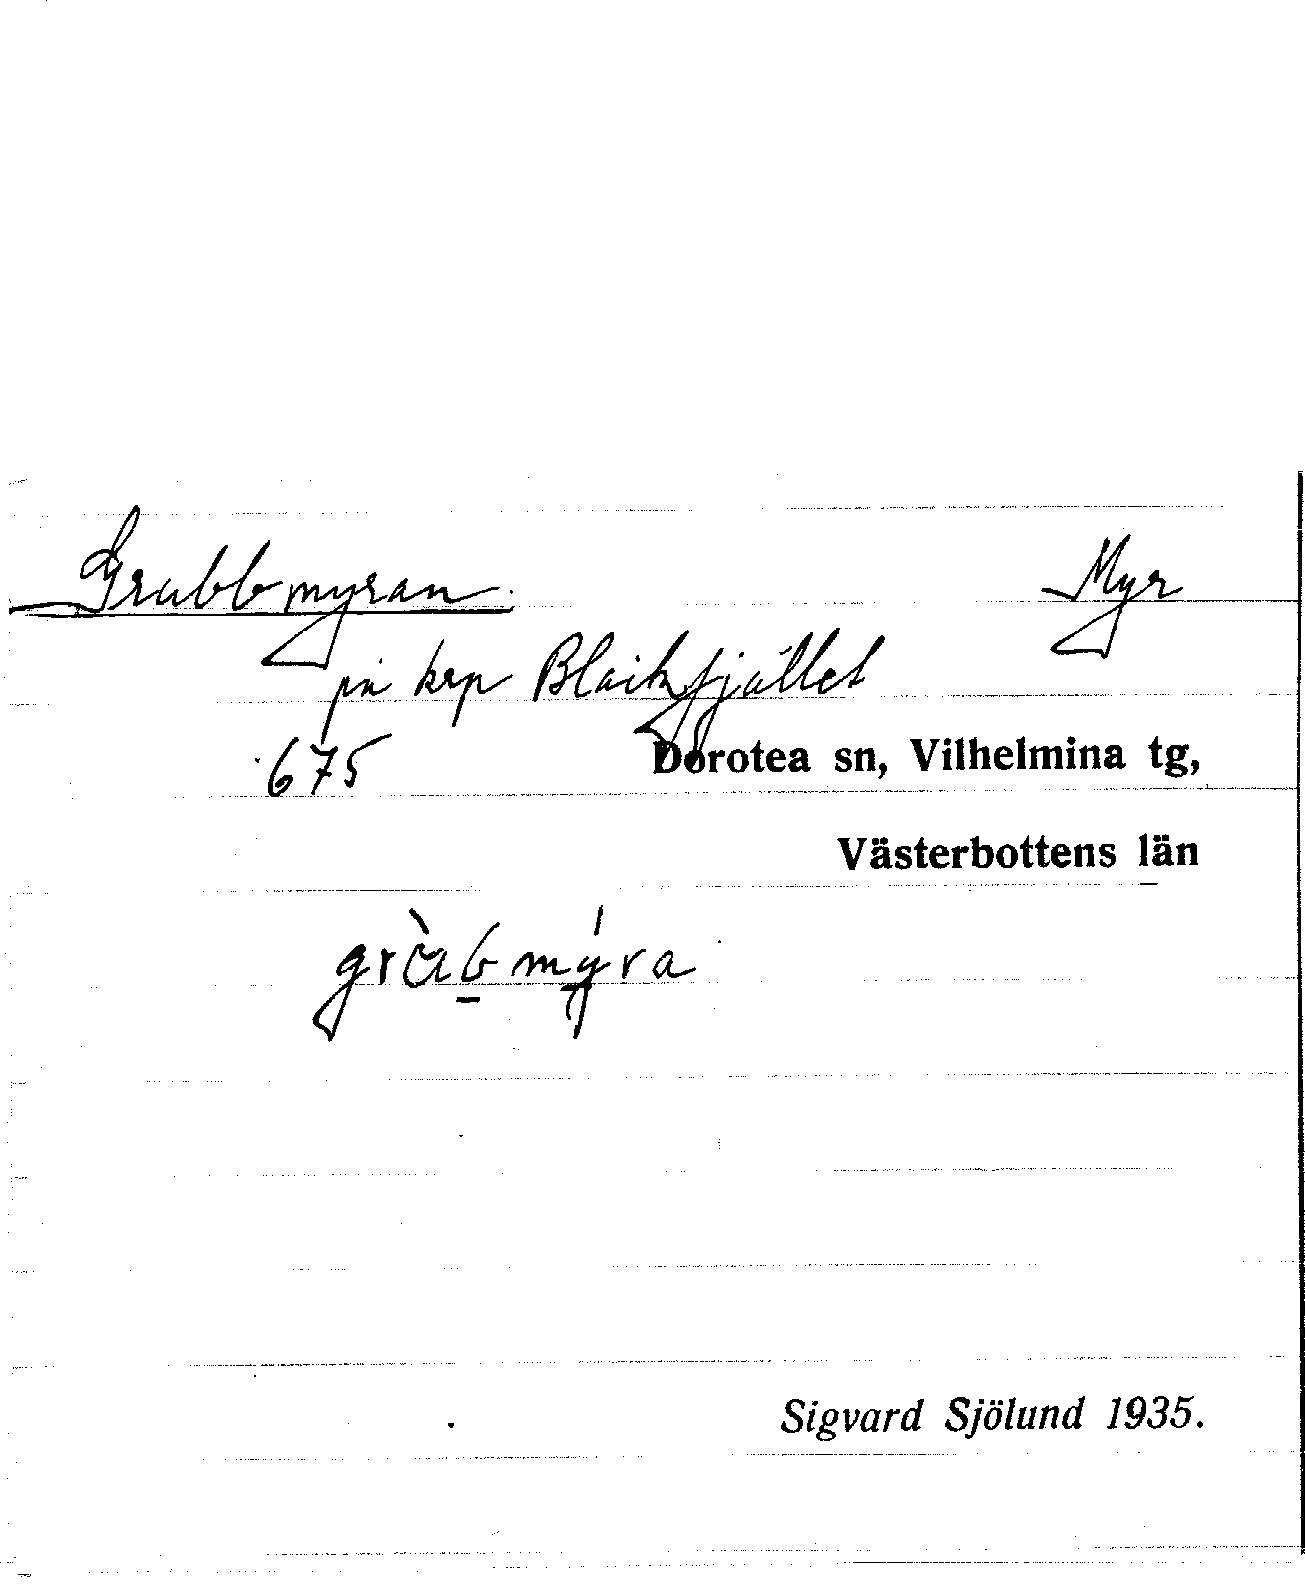 Grubbmyran. Myr
på krp Blaikfjället
675 Dorotea sn, Vilhelmina tg,
Västerbottens län
Sigvard Sjölund 1935.